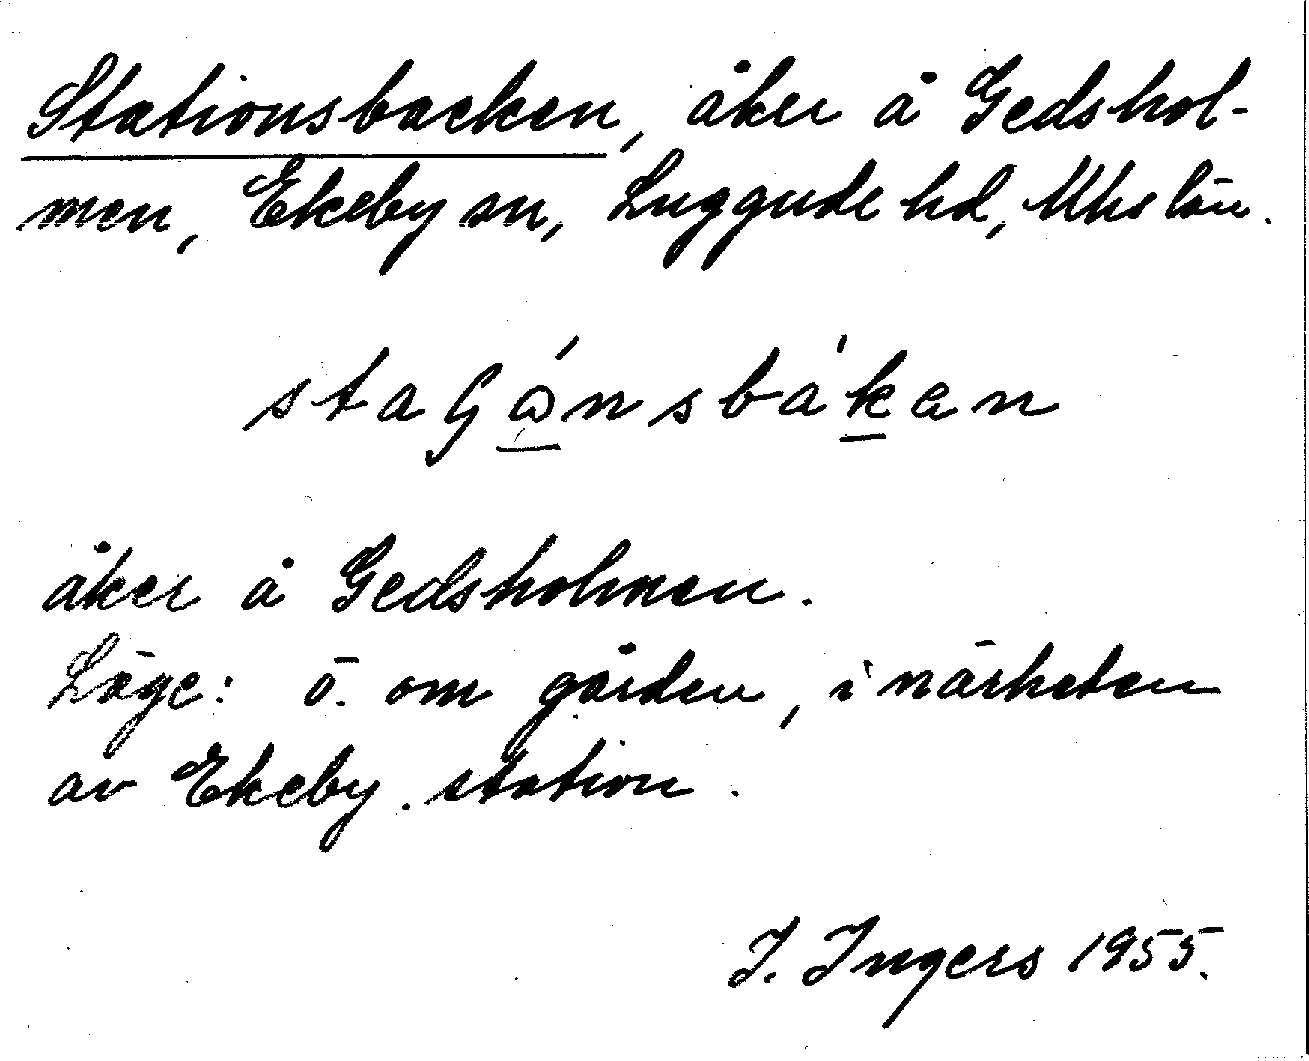 Stationsbacken, åker å Gedshol-
men, Ekeby sn, Luggude hd, Mhs län.
åker å Gedsholmen.
Läge: ö. om gården, i närheten
av Ekeby station.
I. Ingers 1955.